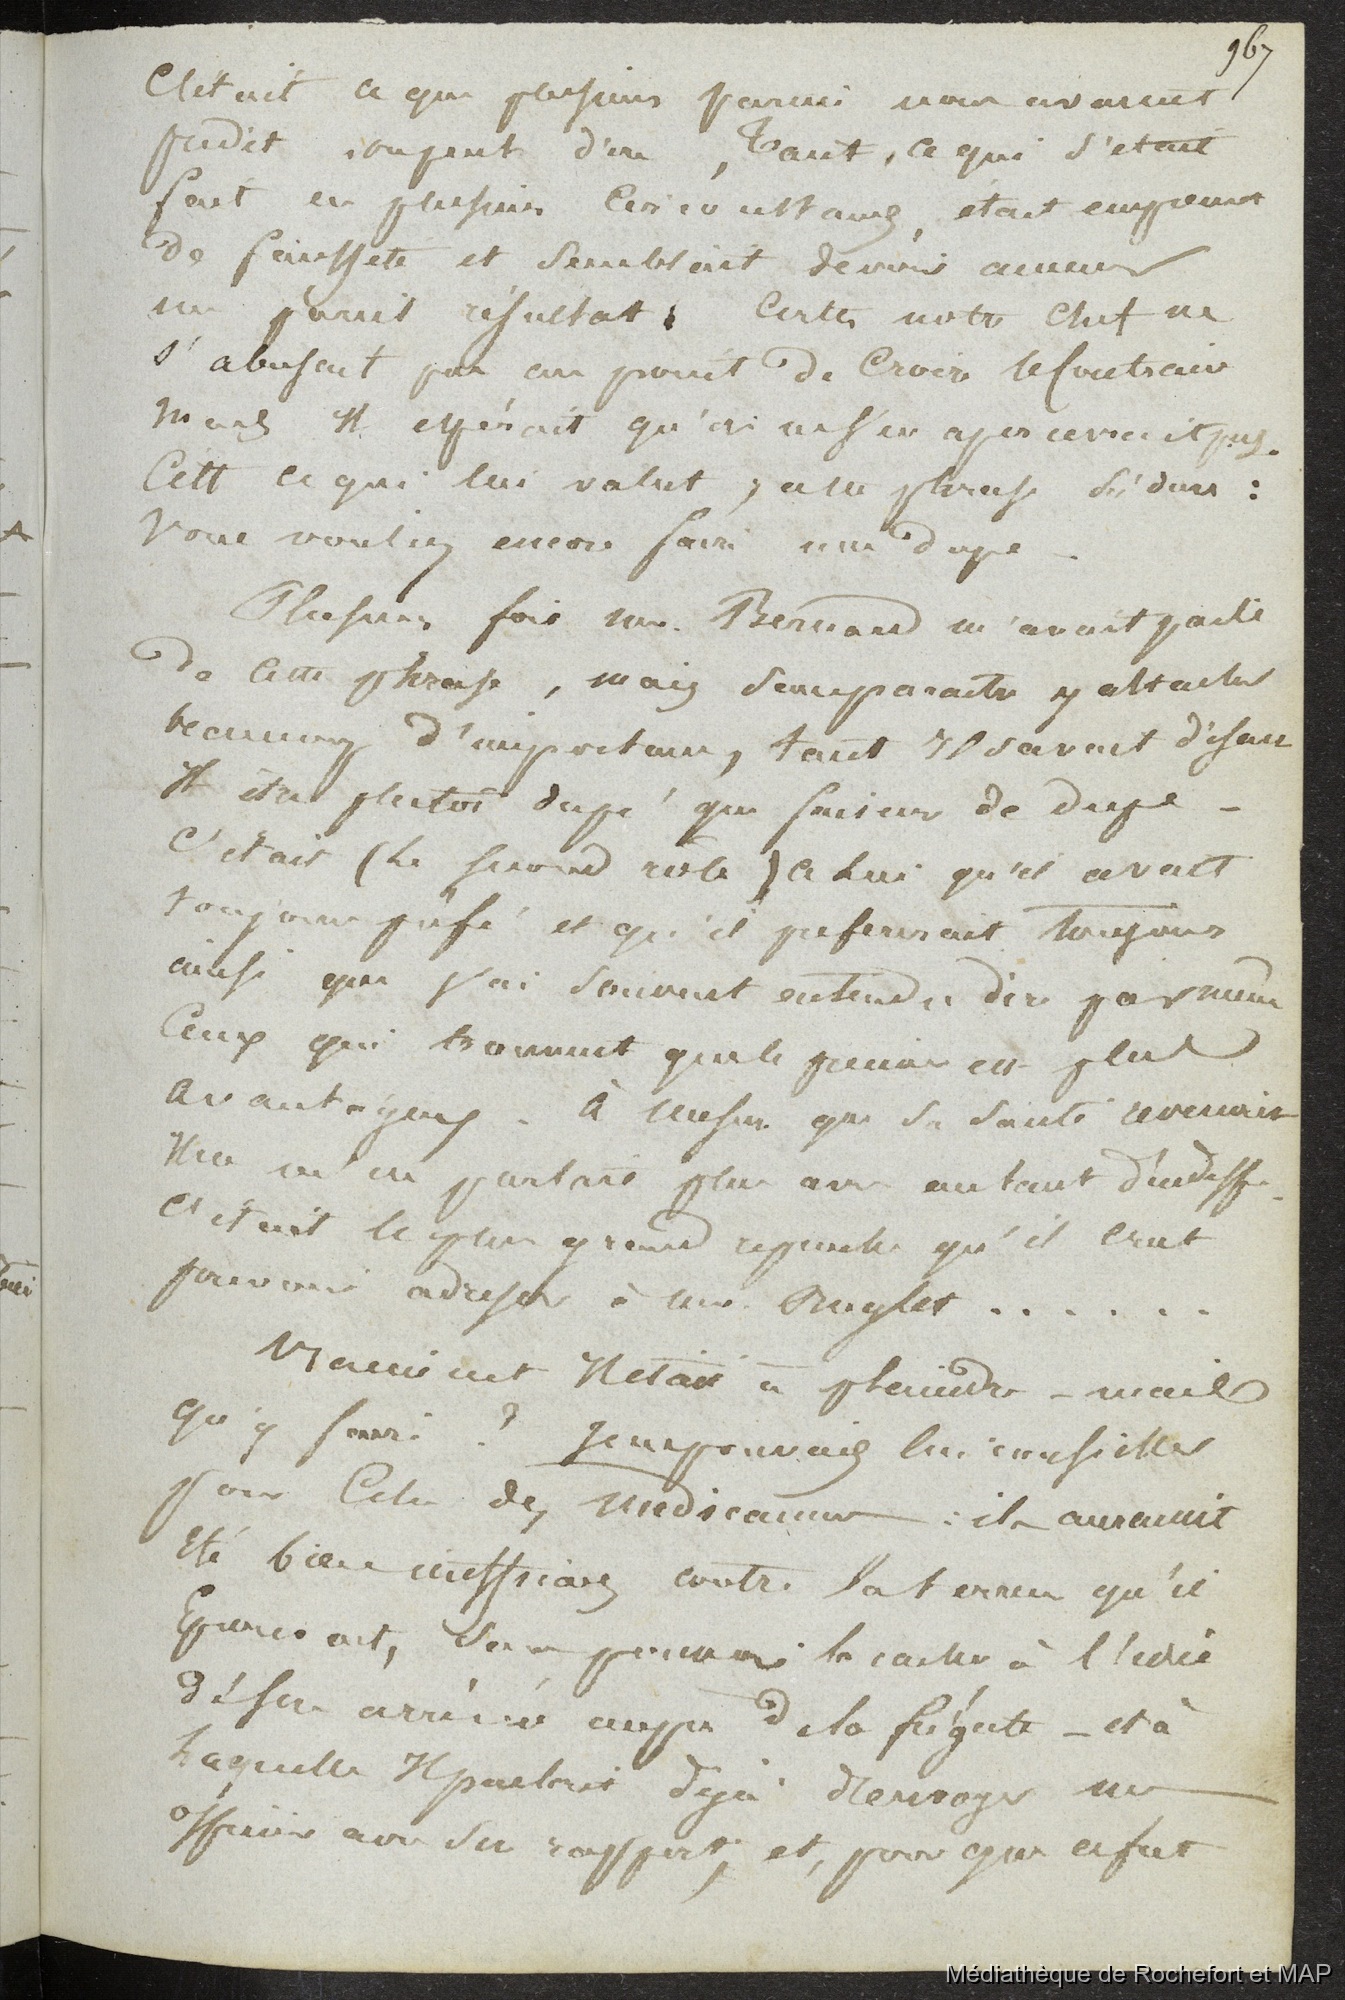 967
C'était ce que plusieurs parmi nous avaient
prédit longtems d'en , Tant, ce qui s'était
fait en plusieurs circonstances, était empreint
de fausseté et semblait devoir amener
un pareil résultat. Certes notre Chef ne
s'abusait pas au point de croire le contraire
mais Il espérait qu'on ne s'en apercevrait pas.
C'est ce qui lui valut, cette phrase si dure :
Vous vouliez encore faire une dupe -
Plusieurs fois mr. Bernard m'avait parlé
de cette phrase, mais sans paraitre y attacher
beaucoup d'importance, tant Il savait disait
Il être plutôt dupé que faiseur de dupe -
C'était (le second rôle) celui qu'il avait
toujours préféré et qu'il préférerait toujours
ainsi que j'ai souvent entendu dire par même
Ceux qui trouvent que le premier est plus
avantageux. À mesure que sa santé revenait
Il ne m'en parlait plus avec autant d'indiffe.
C'était le plus grand reproche qu'il crut
pouvoir adresser à mr.
Vraiment Il était à plaindre - mais
qu'y faire ? Je ne pouvais lui conseiller
pour cela des médicamens : ils auraient
été bien inefficaces contre la terreur qu'il
éprouvait, sans pouvoir le cacher à l'idée
d'être arrivé auprès de la frégate - et à
laquelle Il parlait déjà d'envoyer un
officier avec son rapport, et, pour que ce fut
Médiathèque de Rochefort et MAP